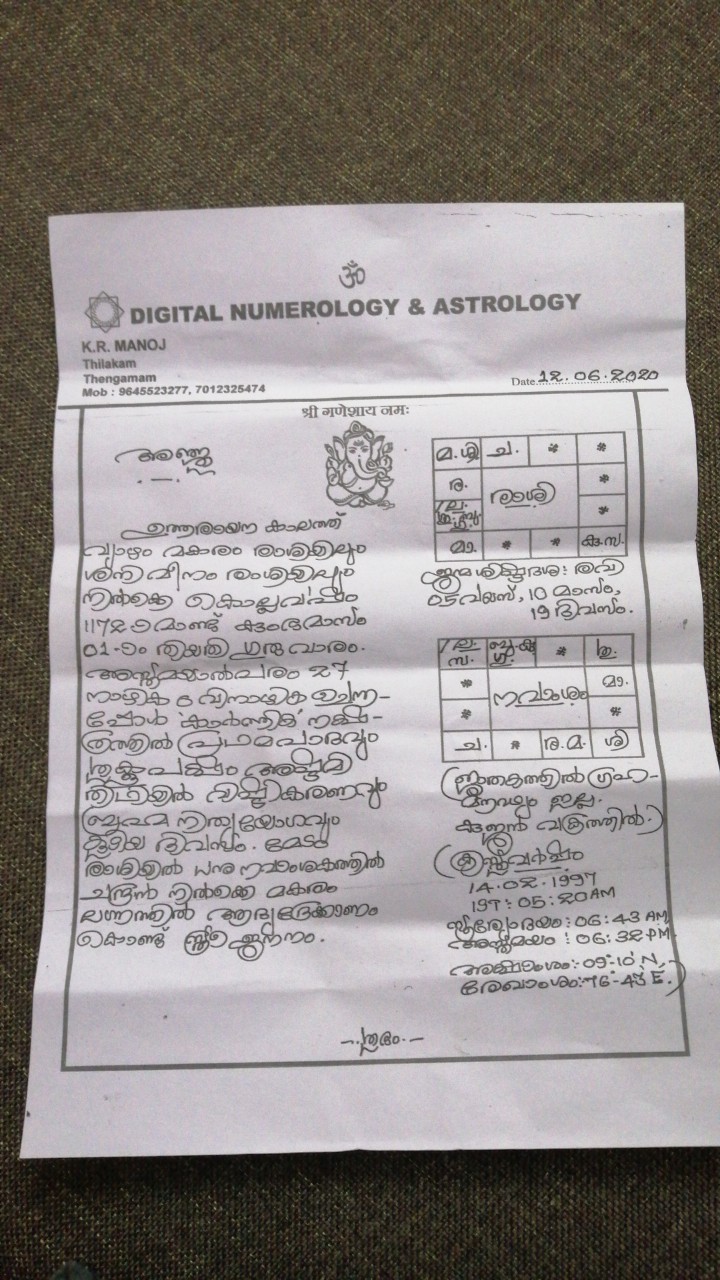 ॐ
DIGITAL NUMEROLOGY & ASTROLOGY
K.R. MANOJ
Thilakam
Thengamam
Mob : 9645523277, 7012325474
Date 12.06.2020
श्री गणेशाय नमः
ഉത്തരായന കാലത്ത്
വ്യാഴം മകരം രാശിയിലും
ശനി മീനം രാശിയിലും
നിൽക്കെ കൊല്ലവർഷം
1172 മാണ്ട് കുംഭമാസം
01-ാം തിയതി ഗുരുവാരം.
അസ്തമയാൽപരം 27
നാഴിക വിനാഴിക ചെന്ന-
പ്പോൾ കാർത്തിക നക്ഷ-
ത്രത്തിൽ പ്രഥമപാദവും
ശുക്ലപക്ഷം അഷ്ടമി
തിഥിയിൽ വിഷ്ടികരണവും
ബ്രഹ്മ നിത്യയോഗവും
കൂടിയ ദിവസം. മേടം
രാശിയിൽ ധനു നവാംശകത്തിൽ
ചന്ദ്രൻ നിൽക്കെ മകരം
ലഗ്നത്തിൽ ആദ്യദ്രേക്കാണം
കൊണ്ട് സ്ത്രീ ജനനം.
മ.ശി ച. * *
ര. രാശി *
*
മാ. * * കു.സ.
ജന്മ ശിഷ്ടദശ: രവി
05 വയസ്, 10 മാസം,
19 ദിവസം.
* നവാംശം മാ.
* *
ച. * ര.മ. ശി
(ജാതകത്തിൽ ഗ്രഹ-
മൗഢ്യം ഇല്ല.
കുജൻ വക്രത്തിൽ.)
(ക്രിസ്തുവർഷം
14.02.1997
1ST: 05:20AM
സൂര്യോദയം: 06:43 AM
അസ്തമയം: 06:32 PM.
അക്ഷാംശം:- 09°10' N,
രേഖാംശം:- 76-43 E.)
-.ശുഭം.-